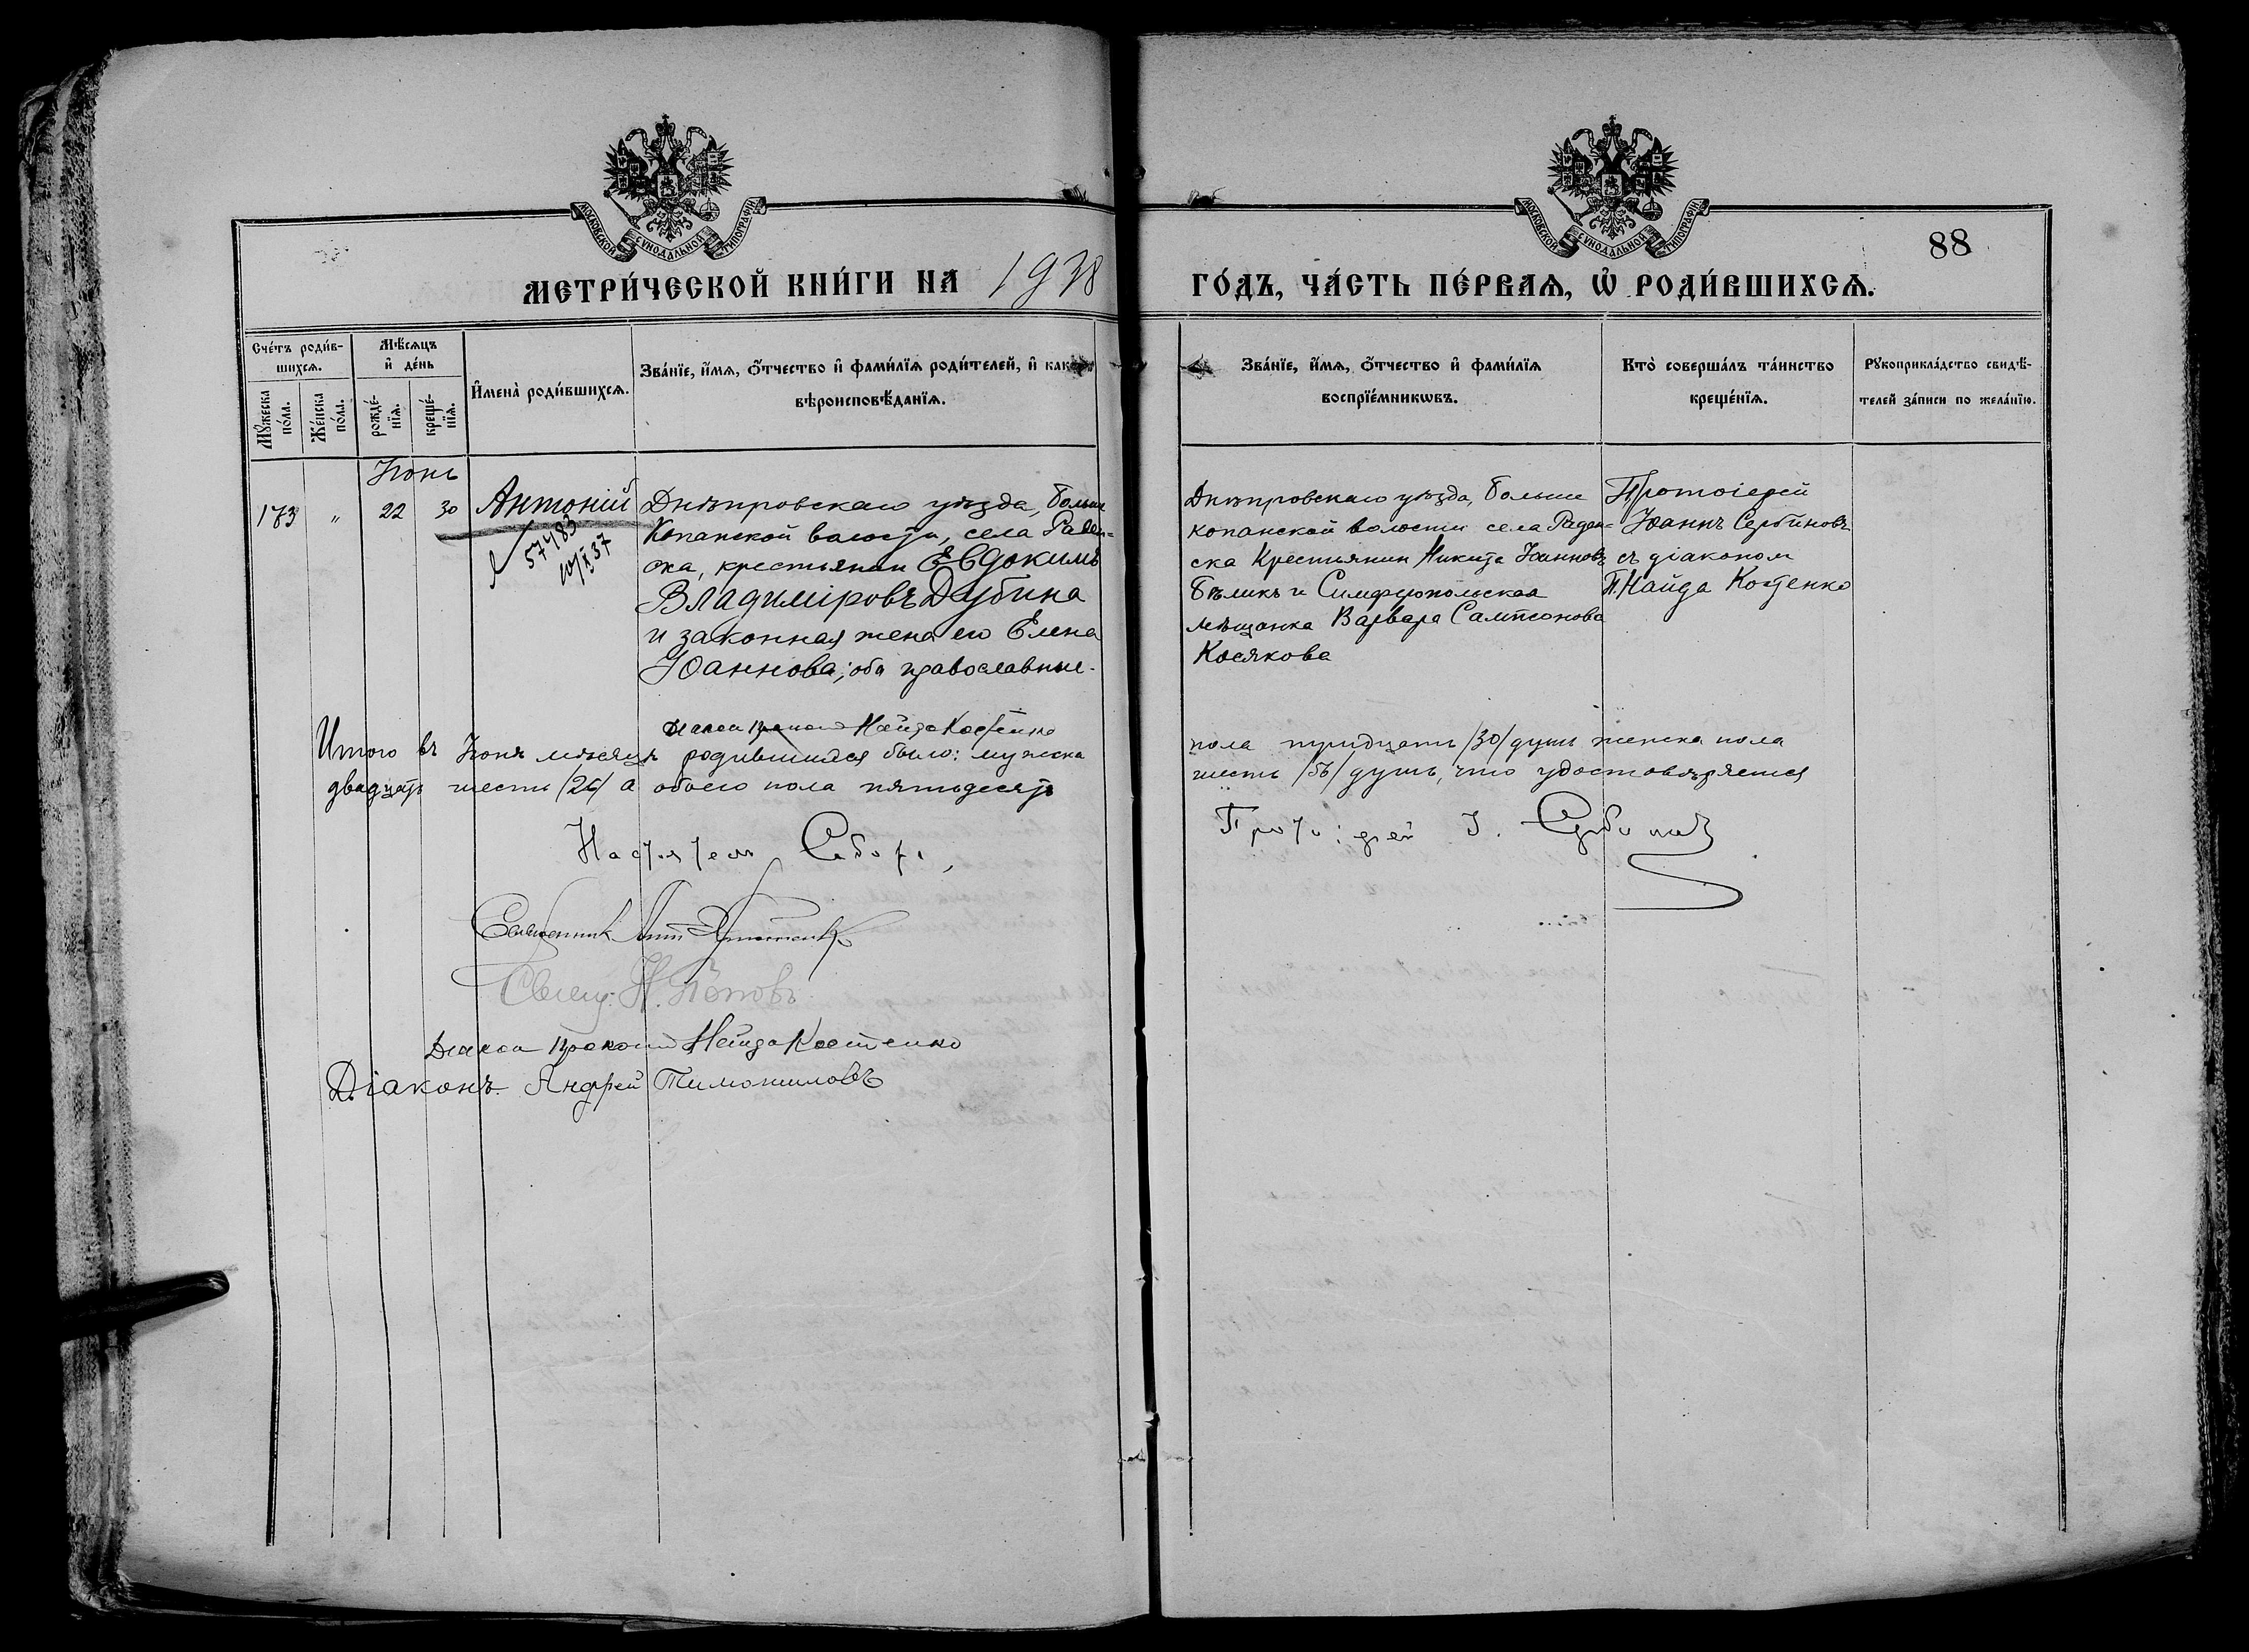 МОСКОВСКОЙ СѴНОДАЛЬНОЙ ТИПОГРАФІИ
МЕТРИ́ЧЕСКОЙ КНИ́ГИ НА
МОСКОВСКОЙ СѴНОДАЛЬНОЙ ТИПОГРАФІИ
88
ГО́ДЪ, ЧА́СТЬ ПЕ́РВАѦ, Ѡ҆ РОДИ́ВШИХСѦ.
Сче́тъ роди́в-
шихсѧ.
Мꙋ́жеска по́ла.
Же́нска по́ла.
Мѣ́сѧцъ
и҆ де́нь
рожде́-
нїѧ.
креще́-
нїѧ.
И҆мена̀ роди́вшихсѧ.
Зва́нїе, и҆́мѧ, ѻ҆́тчество и҆ фами́лїѧ роди́телей, и҆ како́гѡ
вѣроисповѣ́данїѧ.
Зва́нїе, и҆́мѧ, ѻ҆́тчество и҆ фами́лїѧ
воспрїе́мникѡвъ.
Кто̀ соверша́лъ та́инство
креще́нїѧ.
Рꙋкоприкла́дство свидѣ́-
телей за́писи по жела́нїю.
Іюнь
173 " 22 30 Антоній
57483
10/X 37
Днѣпровскаго уѣзда, Больше
Копанской волости, села Раден=
ска, крестьянин Евдокимъ
Владиміровъ Дубина
и законная жена его Елена
Іоаннова; оба православные.
Днѣпровскаго уѣзда, Больше
копанской волости села Раден=
ска Крестьянин Никита Іоанновъ
Бѣликъ и Симферопольская
мѣщанка Варвара Сампсонова
Косякова
Протоіерей
Іоаннъ Сербиновъ
съ діаконом
П. Найда Костенко
Діакон Прокопій Найда Костенко
Итого въ Іюнѣ мѣсяцѣ родившихся было: мужска
пола тридцать /30/ душъ женска пола
двадцать шесть /26/ а обоего пола пятьдесятъ
шесть /56/ душъ, что удостовѣряется
Настоятель Собора,
Протоіерей І. Сербиновъ
Священник Ант
Свящ. Н. Поповъ
Діакон Прокопій Найда Костенко
Діаконъ Андрей Тимошиловъ